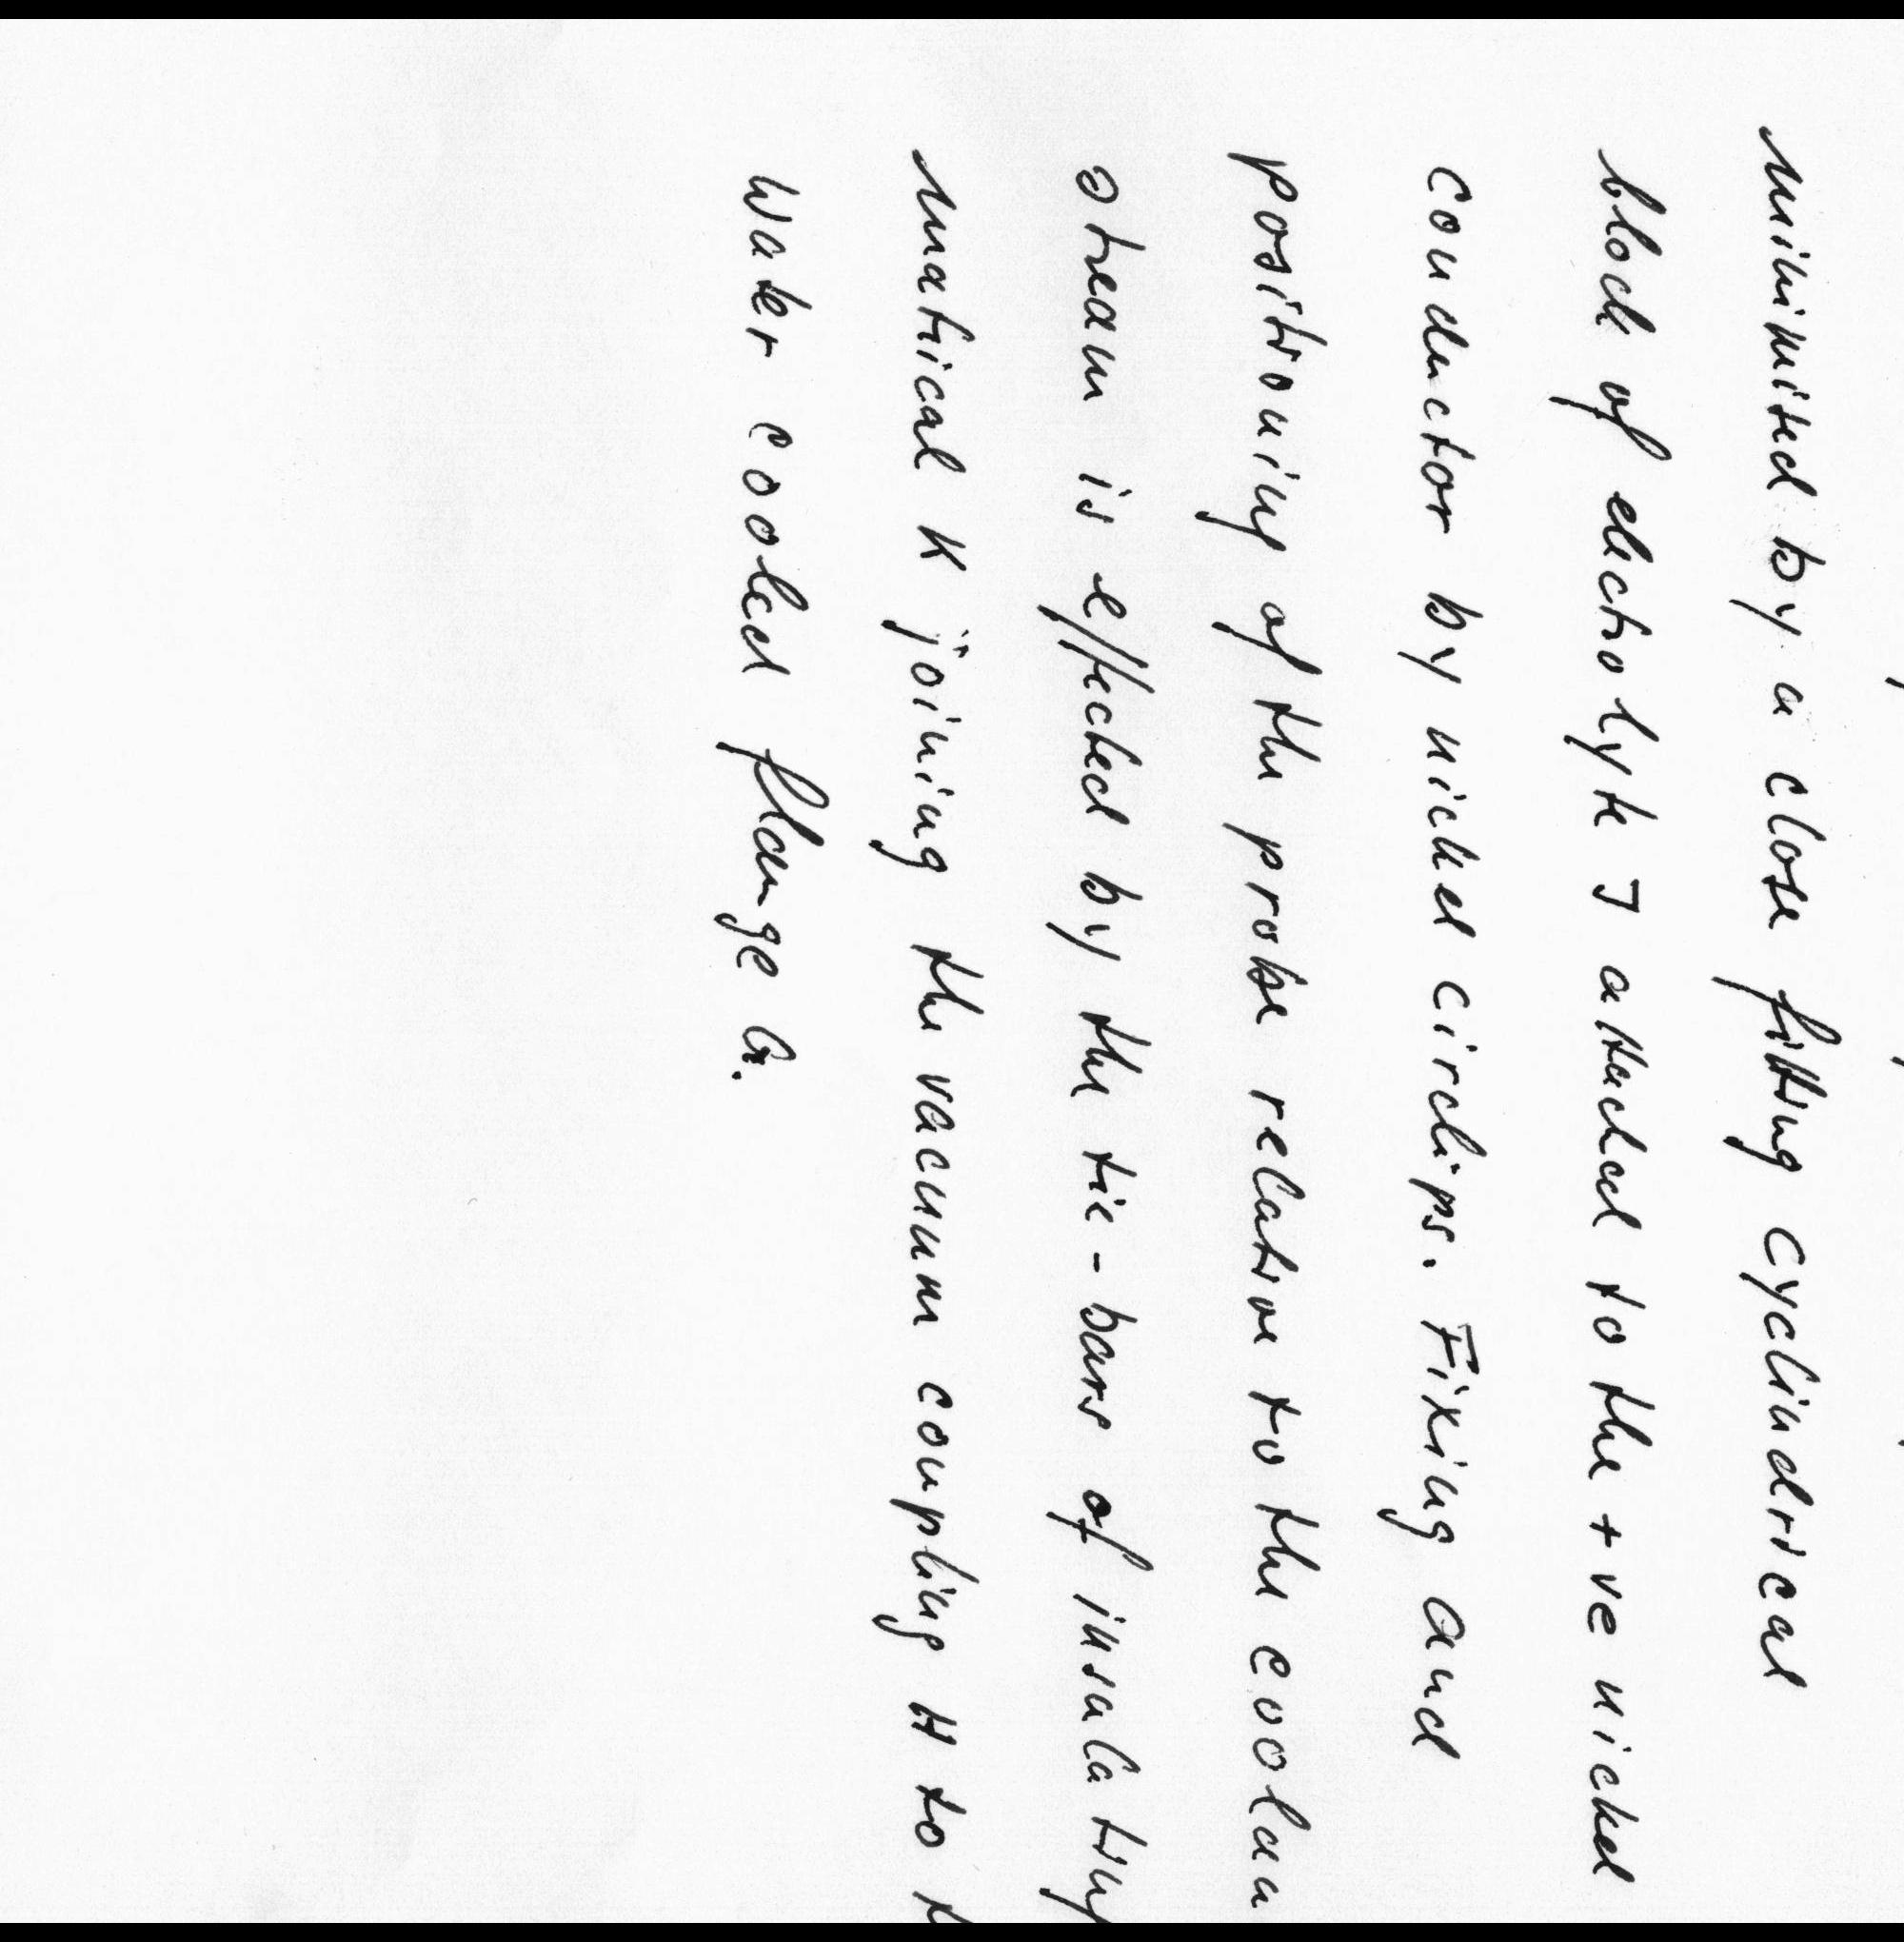 minimited by a close fitting cyclindrical
block of electrolyte J attached to the +ve nickel
conductor by nickel circlips. Fixing and
positioning of the probe relative to the coolan
stream is effected by the tie-bars of insulating
matical K joining the vacuum coupling H to
water cooled flange G.